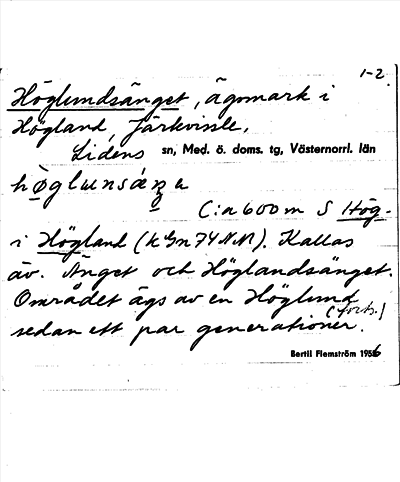 1-2
Höglundsänget, ägomark i
Högland, Järkvissle,
Lidens sn, Med. ö. doms. tg, Västernorrl. län
C:a 600 m S Hög-
i Högland (k Gn 74 NM). Kallas
äv. Änget och Höglandsänget.
Området ägs av en Höglund
sedan ett par generationer. (forts.)
Bertil Flemström 1956